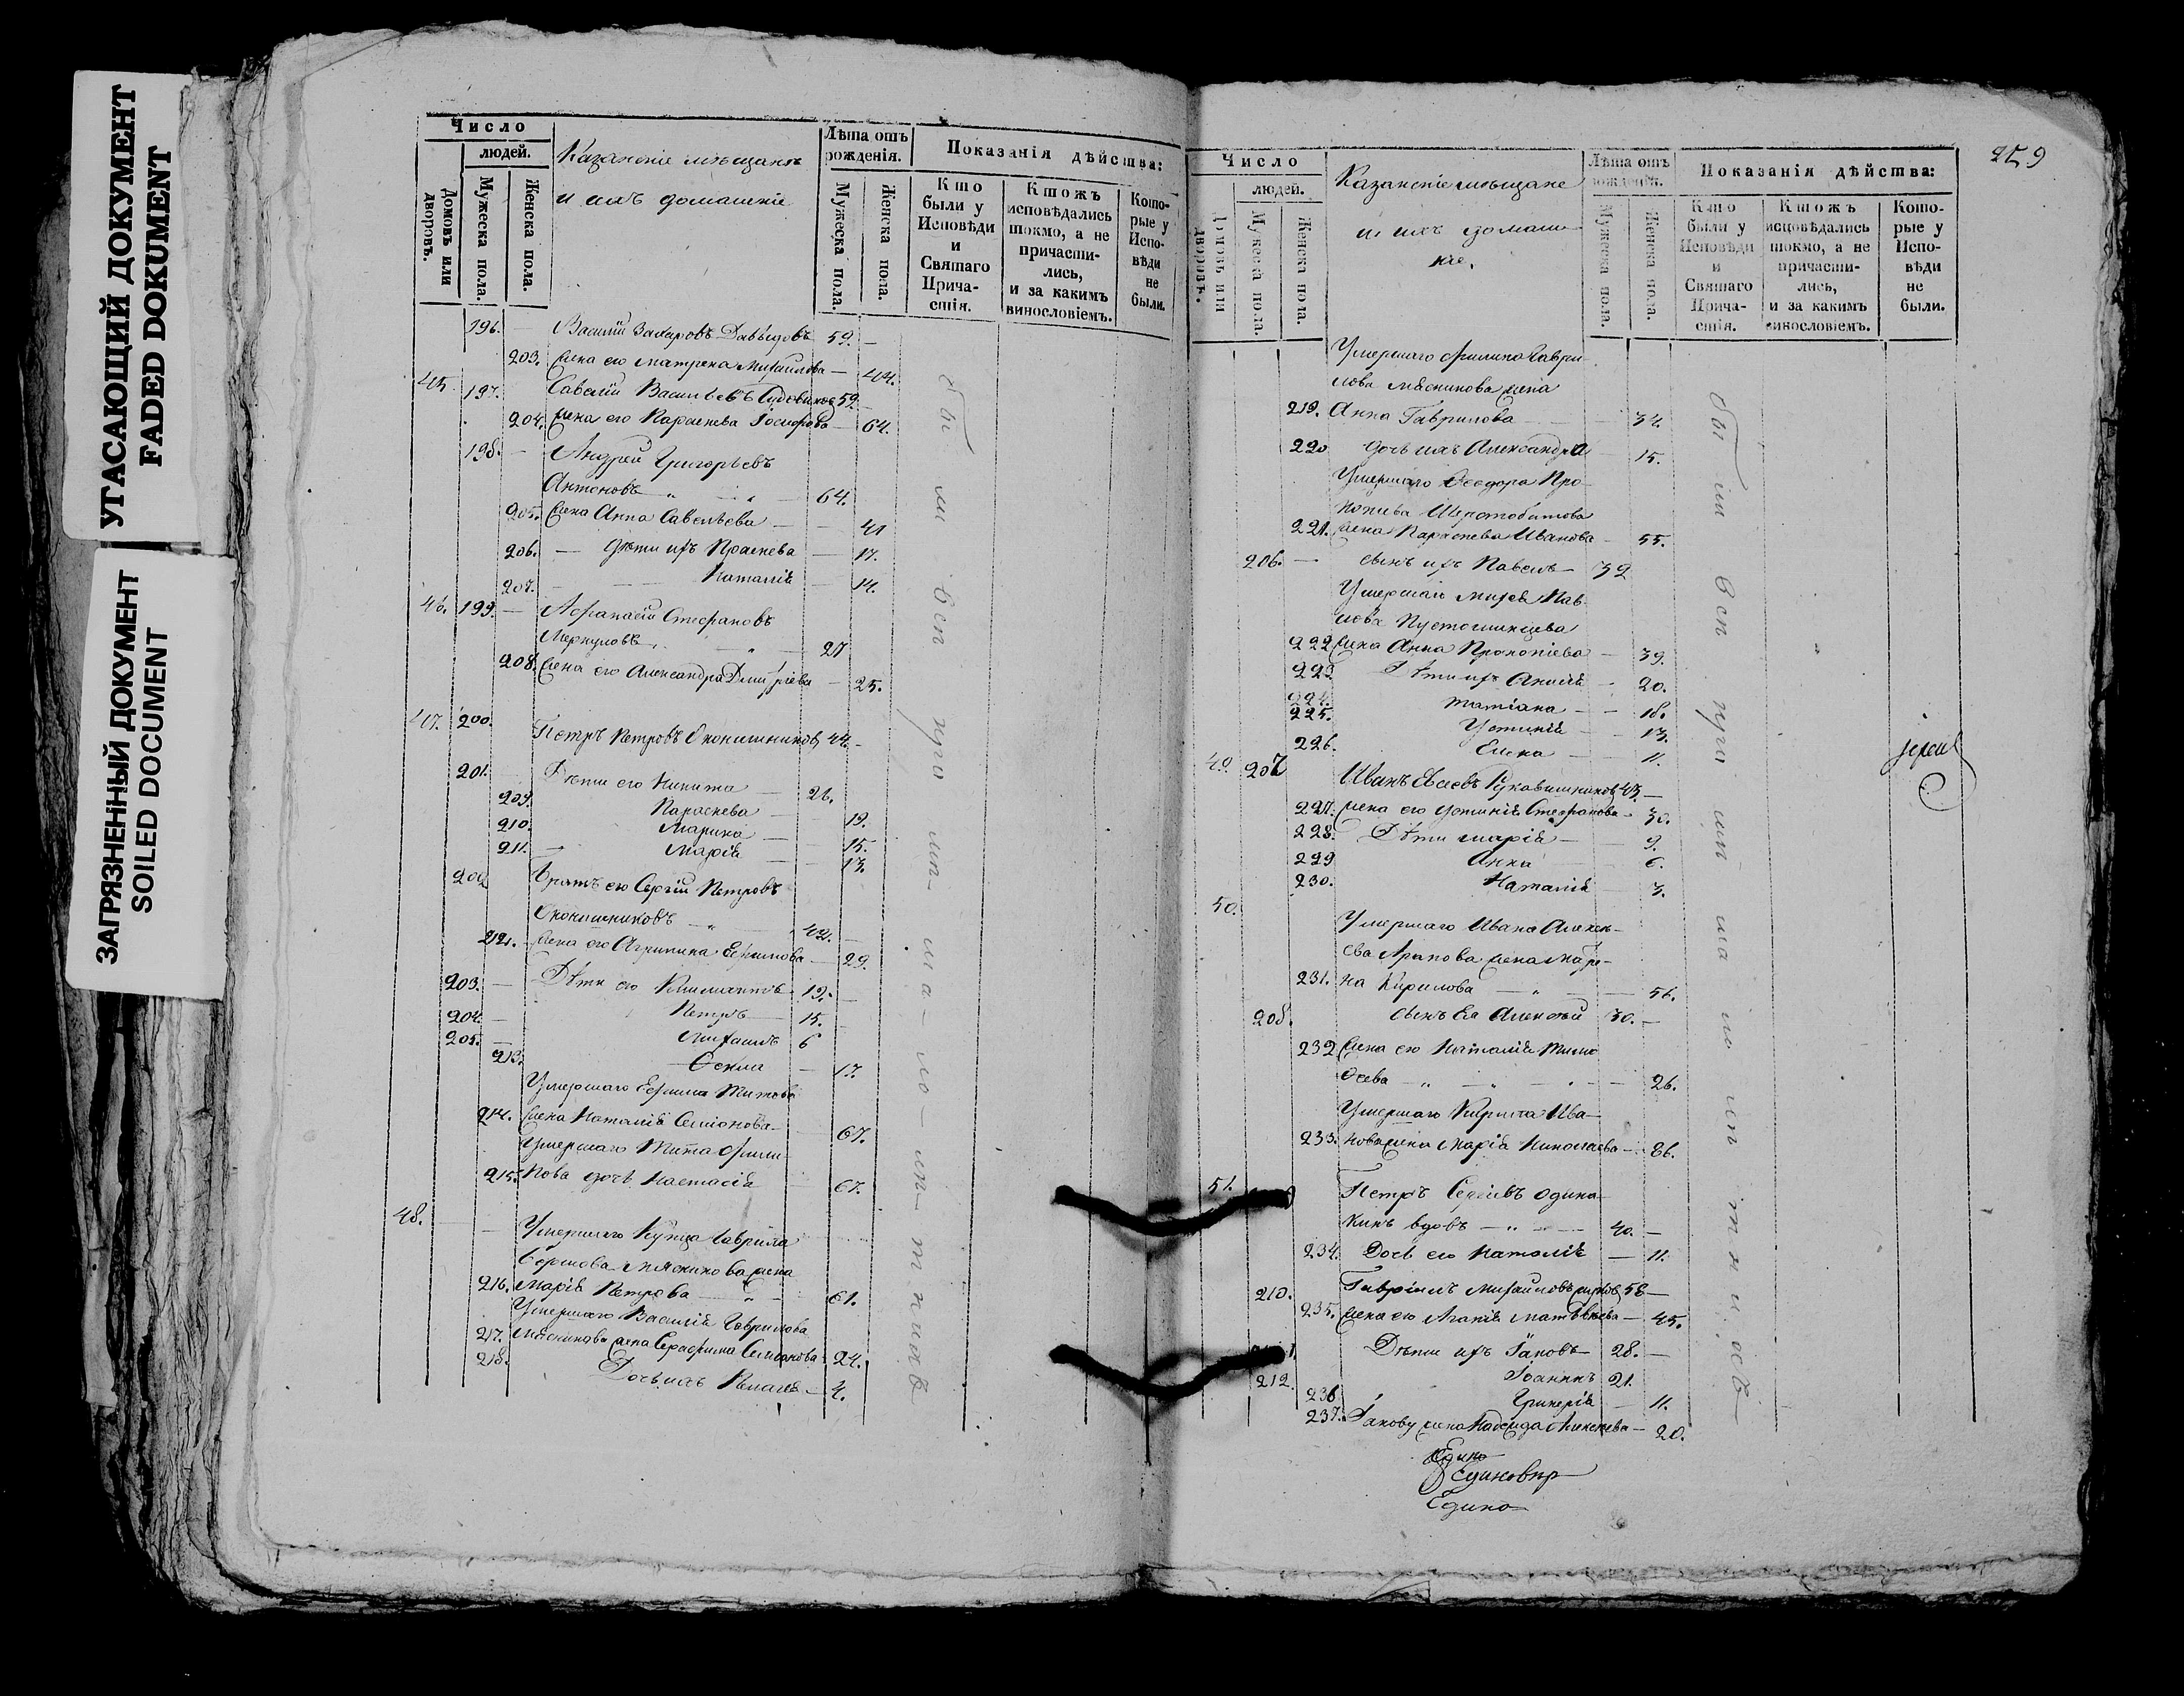 УГАСАЮЩИЙ ДОКУМЕНТ
FADED DOKUMENT
ЗАГРЯЗНЕННЫЙ ДОКУМЕНТ
SOILED DOCUMENT
Число
людей.
Домовъ или дворовъ.
Мужеска пола.
Женска пола.
Казанскіе мѣщане
и ихъ домашніе
Лѣта отъ рожденія.
Мужеска пола.
Женска пола.
Показанія дѣйства:
Кто были у Исповѣди и Святаго Прича-стія.
Ктожъ исповѣдались токмо, а не причасти-лись, и за какимъ винословіемъ.
Кото-рые у Испо-вѣди не были.
196. — Василій Захаровъ Давыдовъ 59. —
203. жена его Матрена Михаилова — 44.
45. 197. Савелій Васильевъ 59.
204. жена его Параскева Іосифова — 64.
198. — Андрей Григорьевъ
Антоновъ 64.
205. жена Анна Савельева — 41
206. — дѣти ихъ Праскева — 17.
207. Наталія 14.
46. 199. — Афанасій Стефановъ
Меркуловъ 27
208. жена его Александра Дмитріева — 25.
47. 200. Петръ Петровъ Оконишниковъ 44. —
201. Дѣти его Никита — 26.
209. Параскева — 19.
210. Марина — 15.
211. — Марія — 13.
202 Братъ его Сергій Петровъ
Оконишниковъ 42. —
212. жена его Агрипина Ефимова — 29.
203. — Дѣти его 19. —
204. — Петръ 15.
205. — Михаилъ 6
213. Фекла — 17.
Умершаго Ефима Титова
214. жена Наталія Семіонова — 67.
Умершаго Тита Фили-
215. пова дочь Настасія 67.
48. Умершаго Купца Гаврила
Мясникова жена
216. Марія Петрова 61.
Умершаго Василія Гаврилова
217. Мясникова жена Серафима Семіонова 24.
218. Дочь ихъ — 4.
бы ли вси при ча- сти-
259
Число
людей.
Домовъ или дворовъ.
Мужеска пола.
Женска пола.
Казанскіе мѣщане
и ихъ домаш-
ніе.
Лѣта отъ рожденія.
Мужеска пола.
Женска пола.
Показанія дѣйства:
Кто были у Исповѣди и Святаго Прича-стія.
Ктожъ исповѣдались токмо, а не причасти-лись, и за какимъ винословіемъ.
Кото-рые у Испо-вѣди не были.
Умершаго Филипа Гаври-
лова Мясникова жена
219. Анна Гаврилова 34.
220 дочь ихъ Александра 15.
Умершаго Феодора Про-
копіева Шерстобитова
221. жена Параскева Иванова — 55.
206. — сынъ ихъ Павелъ — 32
Умершаго Михея Пав-
лова Пустошинцева
222 жена Анна Прокопіева — 39.
223 Дѣти ихъ 20.
224. Татіана — 18.
225. Устинія — 13.
226. Елена — 11.
49. 207 Иванъ Рукавишниковъ 43. —
227. жена его Устинія Стефанова — 30.
228. Дѣти Марія — 9.
229 Анна 6.
230. Наталія 3.
50. Умершаго Ивана Алексѣ-
ева Арапова жена
231. на Кирилова 56.
208. сынъ Ея Алексѣй 30. —
232 жена его Наталія Тимо
феева 26.
Умершаго Кирила Ива-
233. нова жена Марія Николаева — 86.
51. Петръ
вдовъ 40. —
234. Дочь его Наталія — 11.
210. Гавріилъ Михаиловъ 58 —
235. жена его Агапія Матвѣева — 45.
Дѣти ихъ Іаковъ 28. —
212. Іоаннъ 21.
236 11.
237. Іакову жена Надежда Алексѣева — 20.
Едино
Единовѣр
Едино
іерей